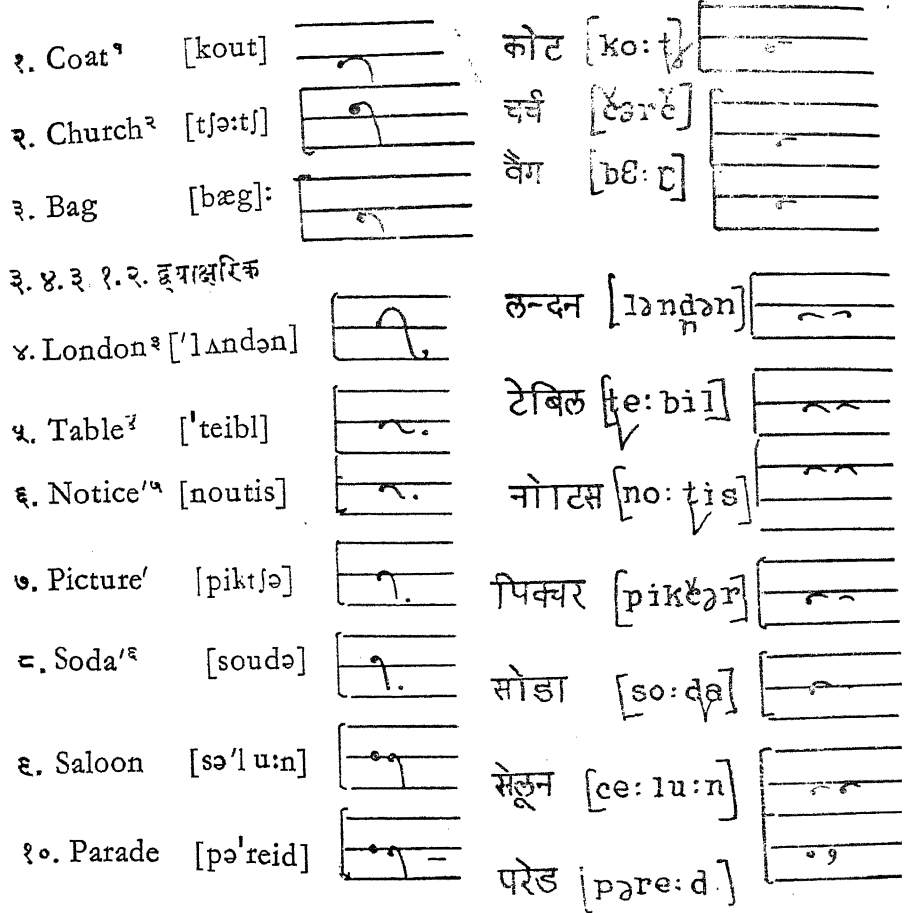 १. Coat¹ [kout] कोट [ko:t]
२. Church² [tʃə:tʃ] चर्च [čərč]
३. Bag [bæg]: वैग [bɛ:g]
३.४.३ १.२. द्व्याक्षरिक
४. London³ ['lʌndən] लन्दन [ləndən]
५. Table⁴ ['teibl] टेबिल [te:bil]
६. Notice'⁵ [noutis] नोटिस [no:tis]
७. Picture' [piktʃə] पिक्चर [pikčər]
८. Soda'⁶ [soudə] सोडा [so:da]
९. Saloon [sə'lu:n] सेलून [ce:lu:n]
१०. Parade [pə'reid] परेड [pəre:d.]